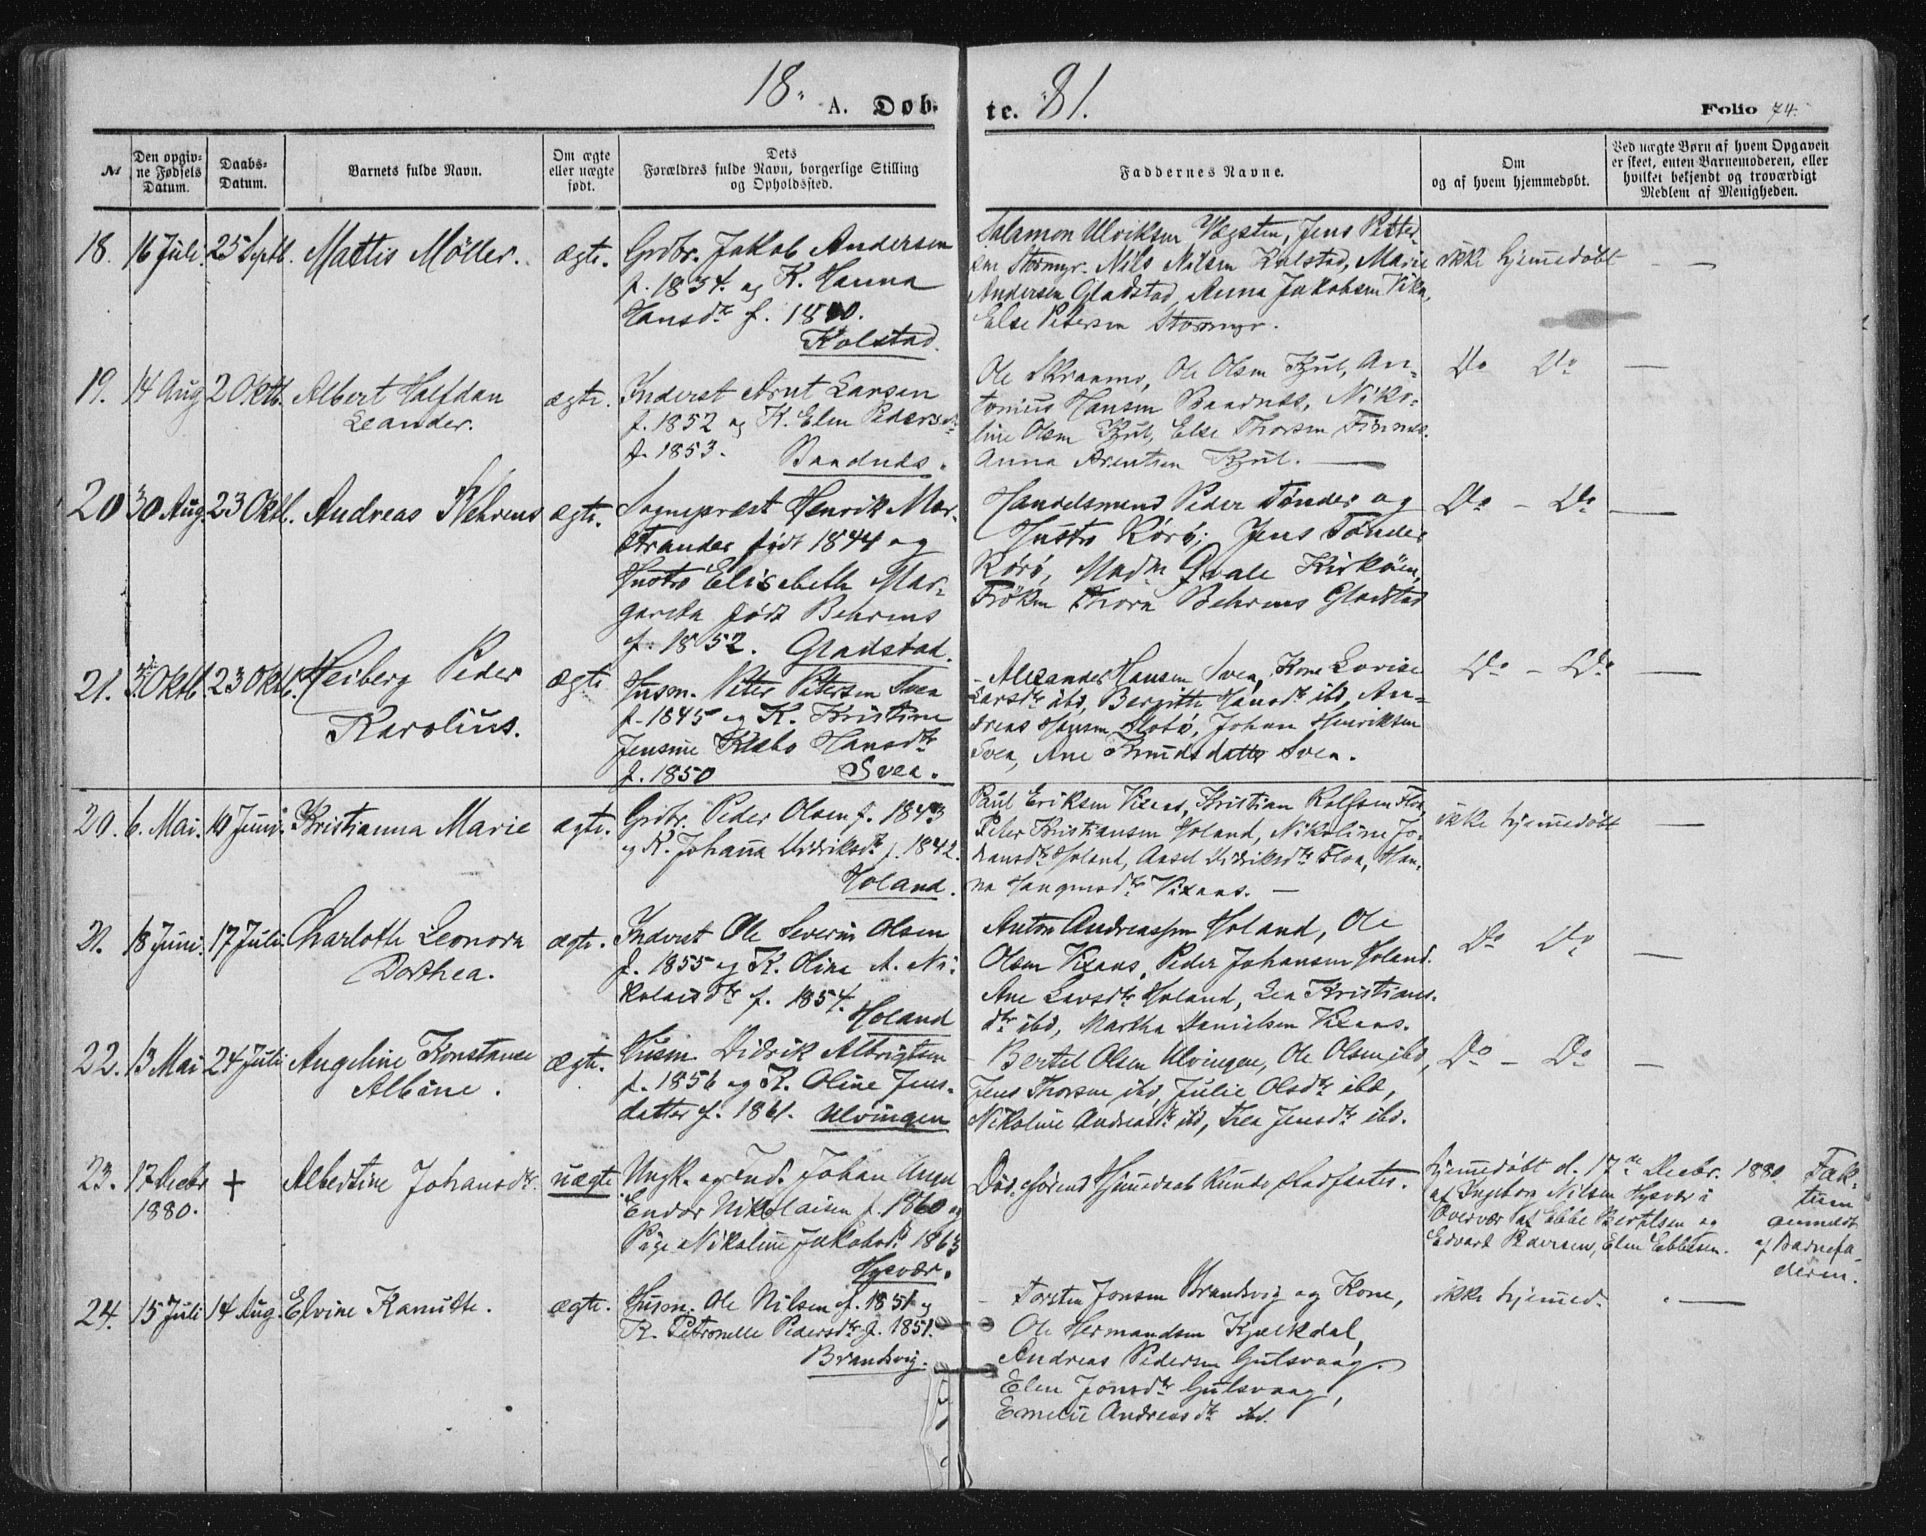 18. A. Døb-
te. 81.
Folio 74.
№
Den opgiv-
ne Fødsels
Datum.
Daabs-
Datum.
Barnets fulde Navn.
Om ægte
eller uægte
født.
Dets
Forældres fulde Navn, borgerlige Stilling
og Opholdssted.
Faddernes Navne.
Om
og af hvem hjemmedøbt.
Ved uægte Børn af hvem Opgaven
er skeet, enten Barnemoderen, eller
hvilket bekjendt og troværdigt
Medlem af Menigheden.
18. 16 Juli. 25 Septb. Mattis Møller. ægte.
Grdbr. Jakob Andersen
f. 1834. og K. Hanna
Hansdtr f. 1840.
Kolstad.
Salamon Ulriksen Vægsten, Jens Petter-
sen Stormyr. Nils Nilsen Kolstad, Marie
Andersen Gladstad, Anna Jakobsen Vika,
Else Petersen Stormyr.
ikke hjemmedøbt —
19. 14 Aug 2 Oktb. Albert Halfdan
Leander.
ægte.
Inderst Arnt Larsen
f. 1852 og K. Elen Pedersdtr
f. 1853. Baadnes.
Ole Skraamo, Ole Olsen Kjul, An-
tonius Hansen Baadnes, Niko-
line Olsen Kjul, Else Thorsen
Anna Arentsen Kjul. —
Do Do —
20 30 Aug. 23 Oktb. Andreas Behrens ægte.
Sognepræst Henrik Mar-
strander født 1844 og
Hustro Elisabeth Mar-
gareta født Behrens
f. 1852. Gladstad.
Handelsmend Peder Tønder og
Hustro Rørö; Jens Tønder
Rørö, Madm Qvale Kirköen,
Fröken Thora Behrens Gladstad
Do - Do —
21. 3 Oktb. 23 Oktb. Heiberg Peder
Karolius.
ægte
Husm. Peter Petersen Svea
f. 1845 og K. Kristine
Jensine Klæbo Hansdtr
f. 1850 Svea.
Alexander Hansen Svea, Kone Lovise
Larsdtr ibd, Bergitte Hansdtr ibd, An-
dreas Hansen Slotö, Johan Henriksen
Svea, Ane Knudsdatter Svea.
Do - Do —
20. 6. Mai. 10 Juni. Kristianna Marie ægte.
Grdbr. Peder Olsen f. 1843
og K. Johanna Didriksdtr f. 1842.
Holand.
Paul Eriksen Vixaas, Kristian Rolfsen Floa,
Peter Kristiansen Holand, Nikoline Jo-
hansdtr Holand, Aasel Didriksdtr Floa, Han-
na Vixaas. —
ikke hjemmedøbt —
21. 18 Juni. 17 Juli. Charlotte Leonora
Dorthea.
ægte.
Inderst Ole Severin Olsen
f. 1855 og K. Olina A. Ni-
kolaisdtr f. 1854.
Holand
Anton Andreassen Holand, Ole
Olsen Vixaas, Peder Johansen Holand.
Ane Larsdtr Holand, Lea Kristians-
dtr ibd, Martha Danielsen Vixaas.
Do Do —
22. 13 Mai 24 Juli Angeline Konstance
Albine.
ægte.
Husm. Didrik Albrigtsen
f. 1856 og K. Oline Jens-
datter f. 1861. Ulvingen
Bertel Olsen Ulvingen, Ole Olsen ibd,
Jens Thorsen ibd, Julie Olsdtr ibd,
Nikoline Andreasdtr ibd, Thea Jensdtr ibd.
Do - Do —
23. 17 Decbr
1880.
+
Albertine Johansdtr. uægte
Ungk. og Ind. Johan Angel
Endor Nikolaisen f. 1860 og
Pige Nikoline Jakobsdtr 1863
Hysvær.
Død førend Hjemmedaab kunde stadfæstes.
hjemmedøbt d. 17de Decbr. 1880
af Ingebor Nilsen Hysvær i
Overvær af Ebbe Bertelsen og
Edvard Pedersen, Elen Ebbesen.
Fak-
tum
anmeldt
af Barnefa-
deren.
24. 15 Juli 14 Aug. Elvine Kamitte. ægte.
Husm. Ole Nilsen f. 1851 og
K. Petronelle Pedersdtr f. 1851.
Brandsvig.
Torsten Jonsen Brandsvig og Kone,
Ole Hermandsen Kjælkdal,
Andreas Pedersen Gulsvaag.
Elen Jonsdtr Gulsvaag,
Emelie Andreasdtr ibd.
ikke hjemmed. —